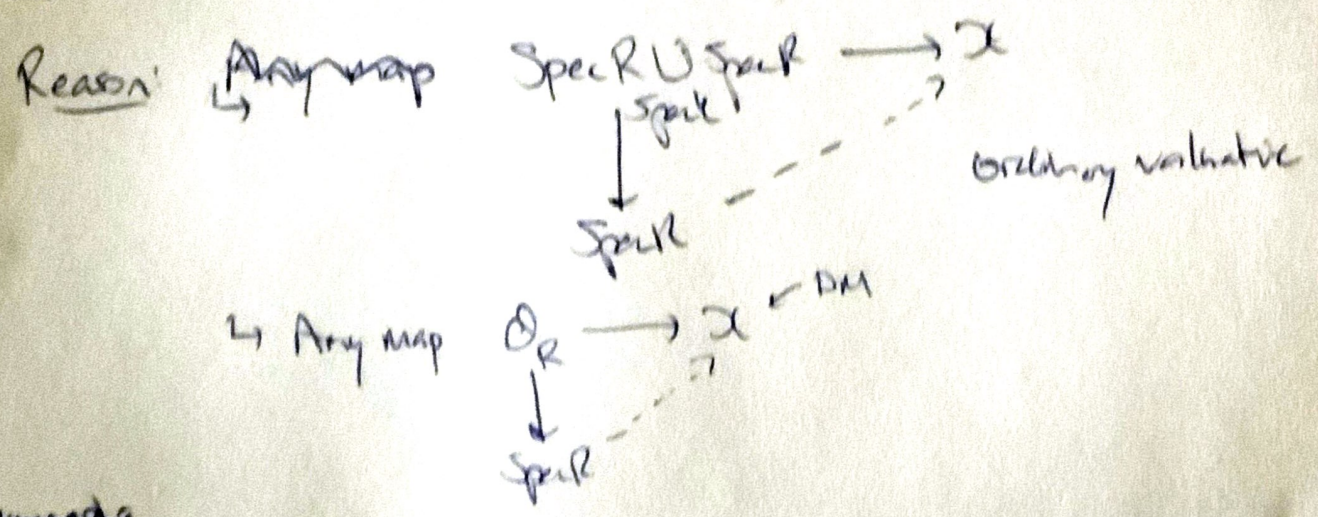 Reason: ↳ Any map Spec R ∪ Spec R → X
Spec K
Spec R
ordinary valuative
↳ Any map Θ_R → X ← DM
Spec R